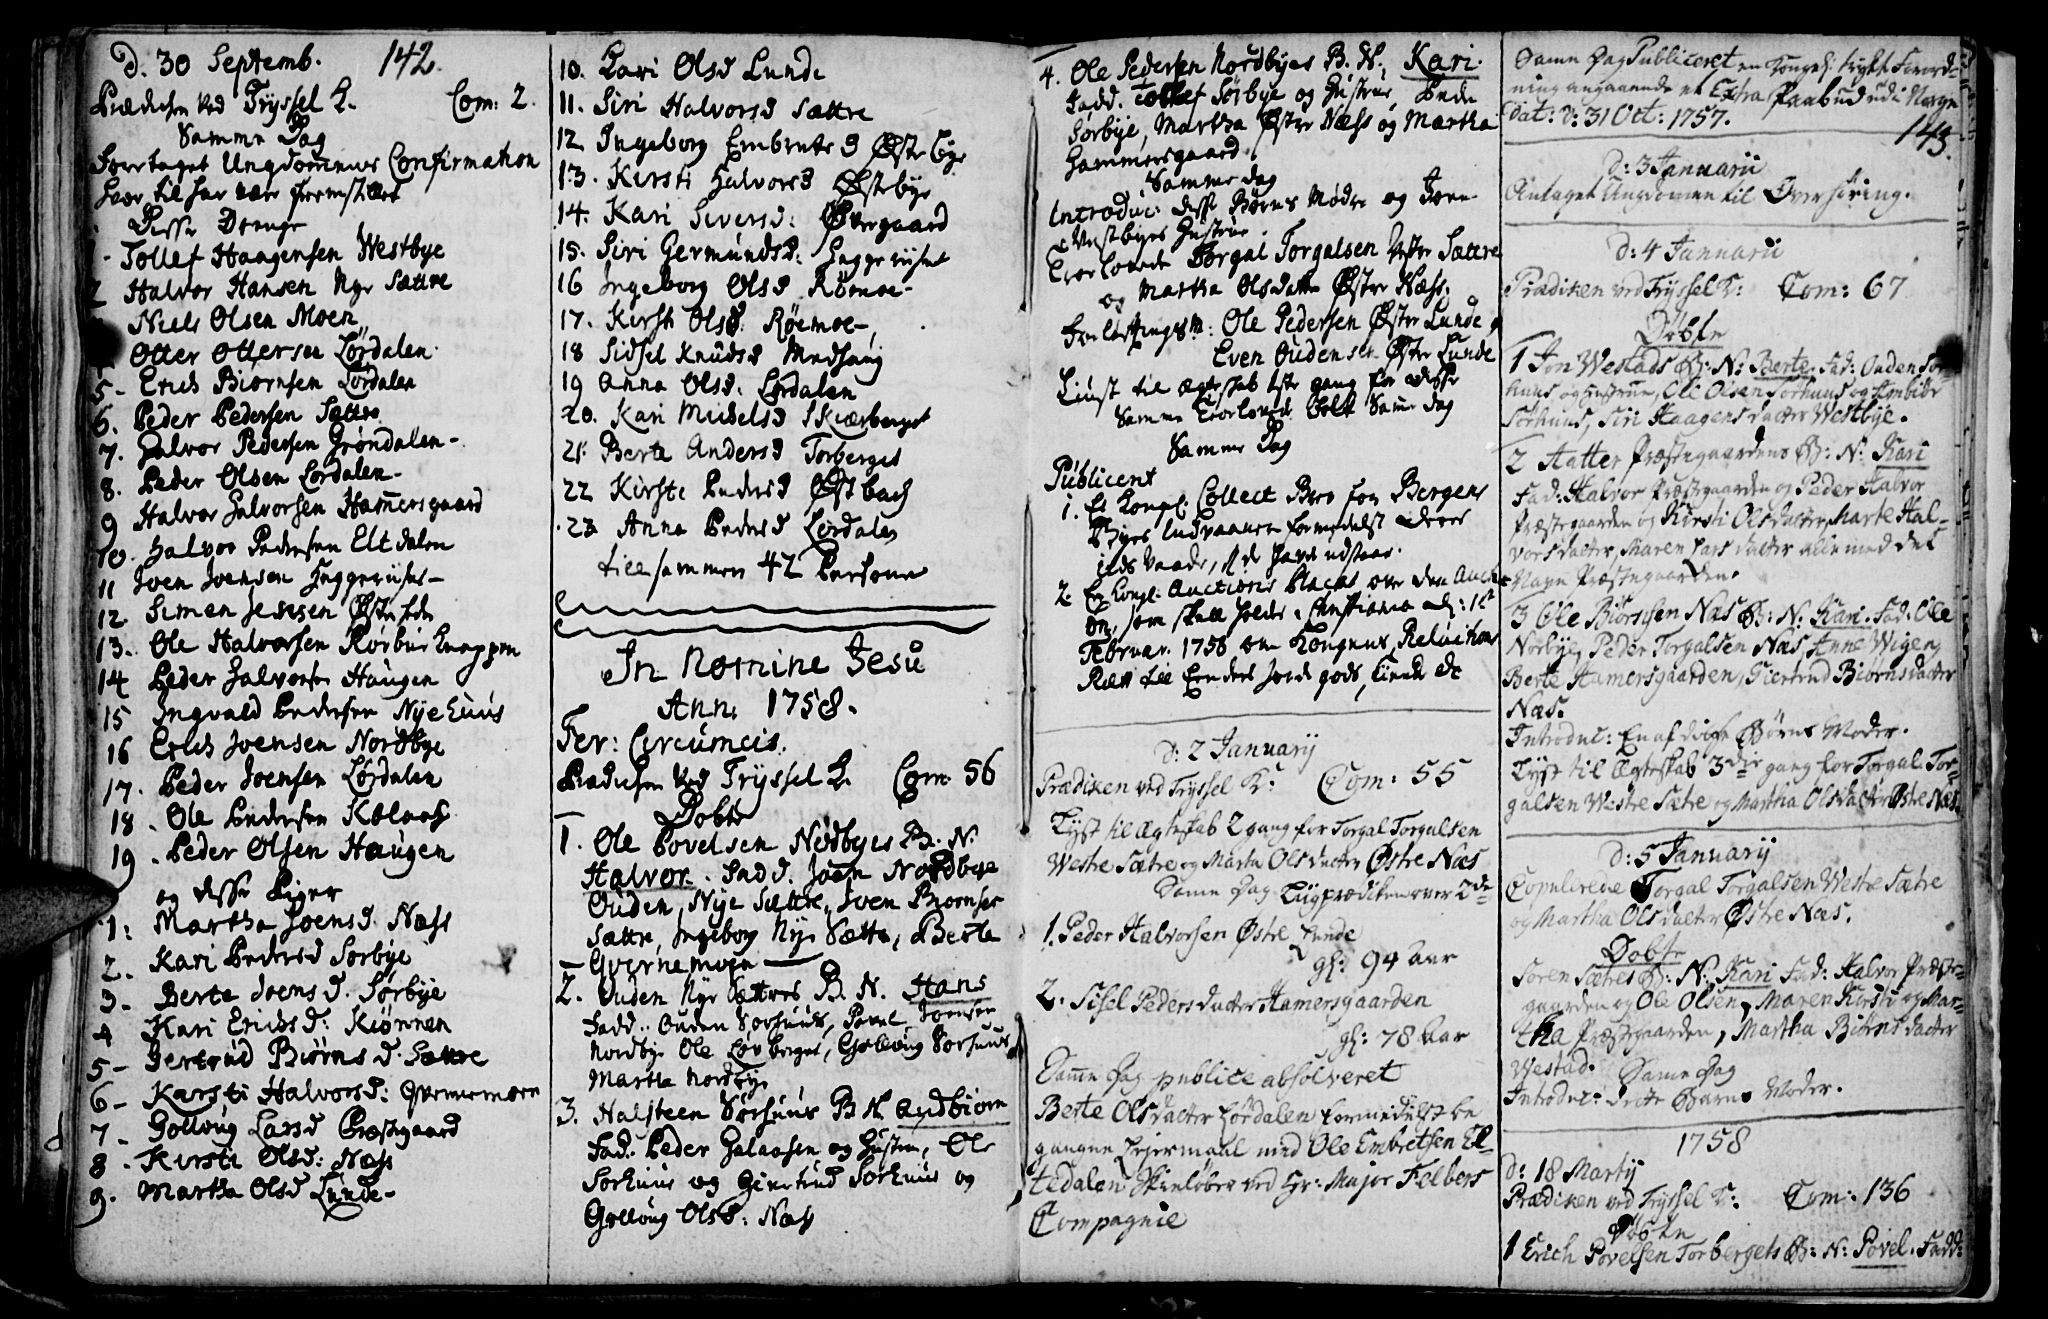 d. 30 Septemb. 142.
Prædichen ved Tryssel K. Com: 2.
Samme Dag
Foretaget Ungdommens Confirmation
hvor til har vær fremstillet
Disse Drenge
1 - Tollef Haagensen Westbye
2 Halvor Hansen Nye Sættre
Niels Olsen Moen
Otter Ottersen Lørdalen
5 - Erich Biørnsen Lørdalen
6. Peder Pedersen Sættre
7. Halvor Pedersen Grøndalen -
8. Peder Olsen Lørdalen -
9 Halvor Halvorsen Hamersgaard
10. Halvor Pedersen Eltdalen
11 Joen Joensen Heggeriiset -
12 Simen Jensen Østerhede
13. Ole Halvorsen Rørbu Knappen
14 Peder Halvorsen Haugen
15 Ingvald Pedersen Nyehuus
16 Erich Joensen Nordbye
17. Peder Joensen Lørdalen
18. Ole Pedersen Kolaas
19. Peder Olsen Haugen
og disse Piger
1: Martha Joensd. Næss
2. Kari Pedersd Sørbye
3 - Berte Joensd. Sørbye
4 Kari Erichsd: Kiønnen
5 - Gertrud Biørnsd. Sættre
6 - Karsti Halvorsd: Qvernemoen
7 - Gollvug Larsd Præstgaard
8. Kirsti Olsd: Næss
9. Martha Olsd Lunde -
10. Kari Olsd Lunde
11. Siri Halvorsd Sættre
12 Ingeborg Embretsd Østbye
13. Kirsti Halvorsd Østbye
14. Kari Siversd: Øvergaard
15. Siri Germundsd: Heggeriiset
16 Ingeborg Olsd Røemoe -
17. Kirsti Olsd: Røemoe -
18 Sidsel Knudsd Medhaug
19 Anna Olsd: Lørdalen
20. Kari Mickelsd Skiærberget
21. Berte Andersd Torberget
22 Kirste Pedersd Østbach
23 Anna Pedersd Lørdalen
tilsammen 42 Persone
In Nomine Jesu
Ann: 1758.
Fer: Circumcis.
Prædichen ved Tryssel K. Com: 56
Døbte
1. Ole Povelsen Nordbyes B. N.
Halvor. Fadd: Joen Nordbye
Ouden Nye Sættre, Iven Biørnsen
Sættre, Ingeborg Nye Sættre, Berte
Qvernemoen
2. Ouden Nye Sættres B. N. Hans
Fadd: Ouden Sørhuus, Povel Joensen
Nordbye Ole Løvberget, Gollvug Sørhuus
Martha Nordbye
3. Halsteen Sørhuus B N Audbiørn
Fad. Peder Galaasen og Hustru, Ole
Sørhuus og Giertrud Sørhuus og
Gollvug Olsd: Næss
4. Ole Pedersen Nordbyes B. N. Kari.
Fadd. Tollef Sørbye og Hustrue, Peder
Sørbye, Martha Øster Næss og Martha
Hammersgaard
Samme dag
Introduc: disse Børns Mødre og Joen
Vestbyes Hustrue.
Troelovede Torgal Torgalsen Vester Sættre
og Martha Olsdatter Øster Næss.
Forlovningsm: Ole Pedersen Øster Lunde og
Even Oudensen Øster Lunde
Liust til Ægteskab 1ste gang for disse
Samme Troelovede Folk Samme dag
Samme Dag
Publiceret
1. Et Kongl: Collect Brev for Bergens
Byes Indvaanere formedelst deres
ilds Vaade, de have udstaaet.
2. En Kongl: Auctions Placat over den Auction
Om, som skall holdes i Christiania d: 1st
Februar. 1758 om Kongens Reluitions
Rætt til Eendeel Jorde gods, Liindt etc
d: 2 Januarij
Prædiken ved Tryssel K: Com: 55
Lyst til Ægteskab 2 gang for Torgal Torgalsen
Westre Sætre og Marta Olsdatter Østre Næs
Samme Dag Liigprædiken over 2de
1. Peder Halvorsen Østre Lunde
gl: 94 Aar
2. Sisel Pedersdatter Hamersgaarden
gl: 78 Aar
Samme Dag publice absolveret
Berte Olsdatter Lørdalen formedelst be
gangne Leiermaal med Ole Embretsen El-
tedalen Skiiløber ved Hr: Major Felbers
Compagnie
Samme Dag Publiceret en Kongel: trykt Forord-
ning angaaende et Extra Paabud udi Norge
Dat: d: 31 Oct: 1757.
143.
d: 3 Januarii
Antaget Ungdommen til Overhøring.
d: 4 Januarii
Prædiken ved Tryssel K: Com: 67
Døbte
1 Jon Westads B: N: Berte. Fad: Ouden Sør-
huus og hustrue, Ole Olsen Sørhuus og Embiør
Sørhuus, Siri Haagensdatter Westbye.
2 Halter Præstegaardens B: N: Kari
Fad: Halvor Præstegaarden og Peder Halvor
Præstegaarden og Kirsti Olsdatter, Marte Hal-
vorsdatter, Maren Larsdatter alle med det
Navn Præstegaarden.
3 Ole Biørnsen Næs B: N: Kari. Fad: Ole
Norbye, Peder Torgalsen Næs, Anne Wigen,
Berte Hamersgaarden, Giertrud Biørnsdatter
Næs.
Introduc: En af disse Børns Moder.
Lyst til Ægteskab 3die gang for Torgal Tor-
galsen Westre Sætre og Martha Olsdatter Østre Næs.
d: 5 Januarij
Copulerede Torgal Torgalsen Westre Sætre
og Martha Olsdatter Østre Næs.
Døbte
Søren Sætres B: N: Kari Fad: Halvor Præste-
gaarden og Ole Olsen, Maren Kirsti og Mar-
tha Præstegaarden, Martha Biørnsdatter
Westad. Samme Dag
Introduc: dette Barns Moder.
1758
d: 18 Martij
Prædiken ved Tryssel K: Com: 136
Døbte
1 Erich Povelsen Torbergets B: N: Povel. Fadd: